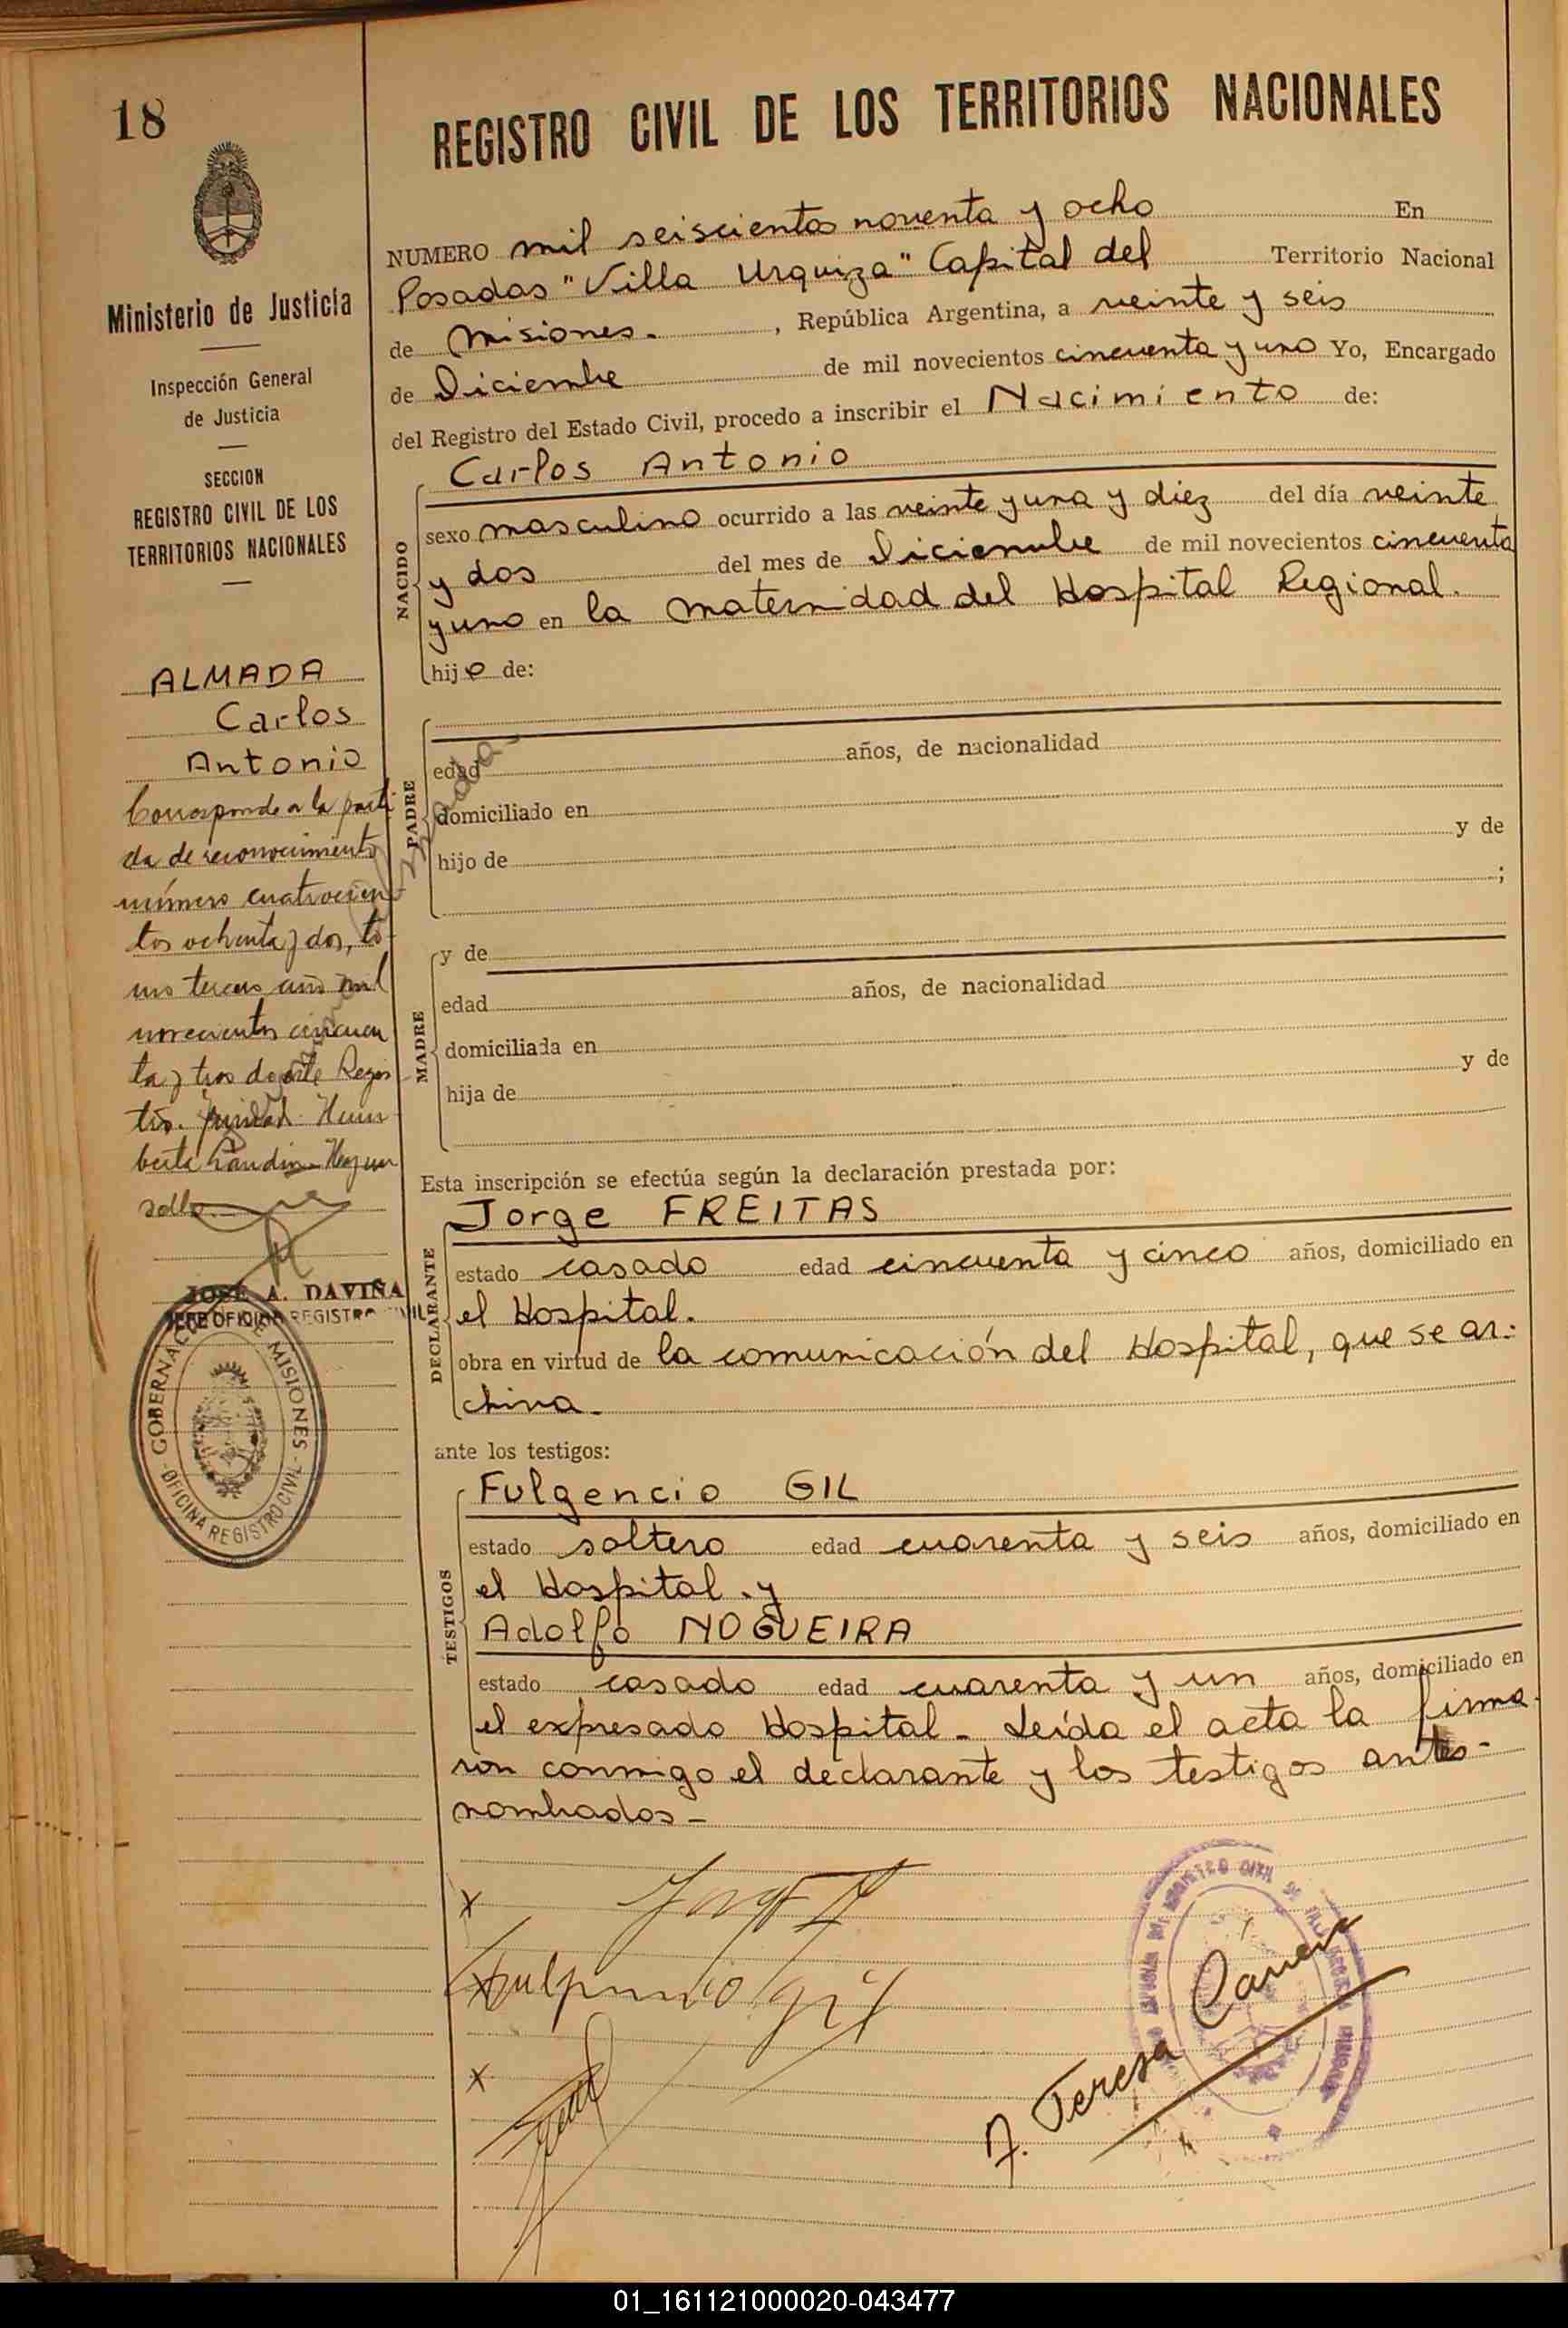 18
Ministerio de Justicia
Inspección General
de Justicia
SECCION
REGISTRO CIVIL DE LOS
TERRITORIOS NACIONALES
ALMADA
Carlos
Antonio
Corresponde a la parti
da de reconocimiento
número cuatrocien
tos ochenta y dos, to
mo tercero año mil
novecientos cincuen
ta y tres de este Regis
tro.
sello.
JOSE A. DAVIÑA
JEFE OFICINA REGISTRO CIVIL
GOBERNACION DE MISIONES
OFICINA REGISTRO CIVIL
REGISTRO CIVIL DE LOS TERRITORIOS NACIONALES
NUMERO mil seiscientos noventa y ocho En
Posadas "Villa Urquiza" Capital del Territorio Nacional
de Misiones. , República Argentina, a veinte y seis
de Diciembre de mil novecientos cincuenta y uno Yo, Encargado
del Registro del Estado Civil, procedo a inscribir el Nacimiento de:
Carlos Antonio
NACIDO
sexo masculino ocurrido a las veinte y una y diez del día veinte
y dos del mes de Diciembre de mil novecientos cincuenta
y uno en la maternidad del Hospital Regional.
hijo de:
PADRE
edad años, de nacionalidad
domiciliado en
hijo de y de
;
MADRE
y de
edad años, de nacionalidad
domiciliada en
hija de y de
Esta inscripción se efectúa según la declaración prestada por:
DECLARANTE
Jorge FREITAS
estado casado edad cincuenta y cinco años, domiciliado en
el Hospital.
obra en virtud de la comunicación del Hospital, que se ar-
chiva.
ante los testigos:
TESTIGOS
Fulgencio GIL
estado soltero edad cuarenta y seis años, domiciliado en
el Hospital. y
Adolfo NOGUEIRA
estado casado edad cuarenta y un años, domiciliado en
el expresado Hospital - Leída el acta la firma-
ron conmigo el declarante y los testigos antes-
nombrados -
x
x
x
Teresa
01_161121000020-043477